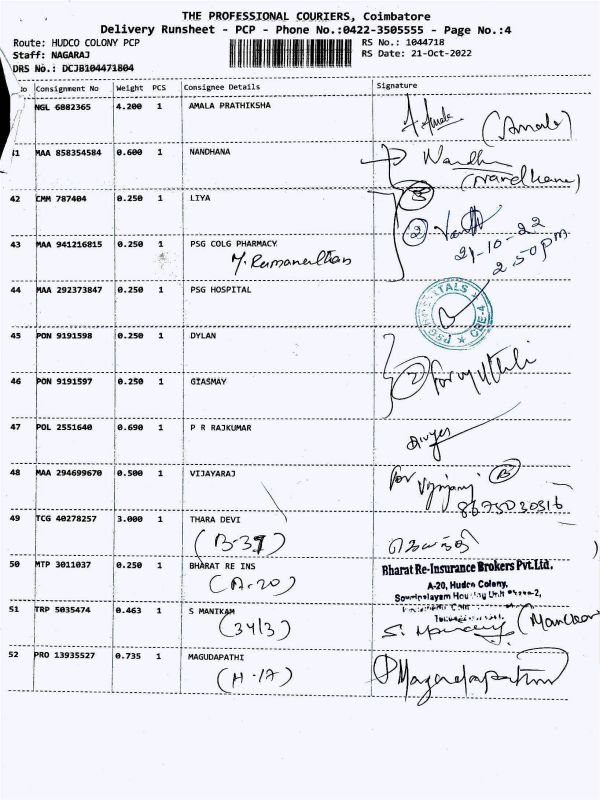 THE PROFESSIONAL COURIERS, Coimbatore
Delivery Runsheet - PCP - Phone No.:0422-3505555 - Page No.:4
Route: HUDCO COLONY PCP RS No.: 1044718
Staff: NAGARAJ RS Date: 21-Oct-2022
DRS No.: DCJB104471804
No Consignment No Weight PCS Consignee Details Signature
NGL 6882365 4.200 1 AMALA PRATHIKSHA
(Amala)
41 MAA 858354584 0.600 1 NANDHANA Nandhu
(Nandhana)
42 CMM 787404 0.250 1 LIYA
43 MAA 941216815 0.250 1 PSG COLG PHARMACY 2 21-10-22
2 50pm
44 MAA 292373847 0.250 1 PSG HOSPITAL
PSG HOSPITALS CBE-4
45 PON 9191598 0.250 1 DYLAN
46 PON 9191597 0.250 1 GIASMAY 2
47 POL 2551640 0.690 1 P R RAJKUMAR
48 MAA 294699670 0.500 1 VIJAYARAJ for
49 TCG 40278257 3.000 1 THARA DEVI
50 MTP 3011037 0.250 1 BHARAT RE INS Bharat Re-Insurance Brokers Pvt.Ltd.
(A-20) A-20, Hudco Colony,
Sowripalayam Housing Unit
51 TRP 5035474 0.463 1 S MANIKAM
(34/3)
52 PRO 13935527 0.735 1 MAGUDAPATHI
(H-17) Magudapathi